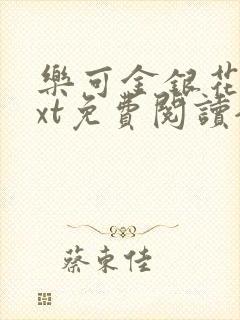 樂可金銀花
xt免費閱讀
蔡東佳